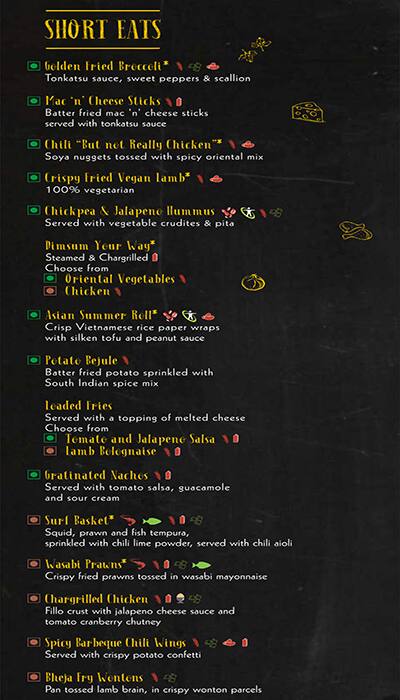 SHORT EATS
Golden Fried Broccoli*
Tonkatsu sauce, sweet peppers & scallion
Mac 'n' Cheese Sticks
Batter fried mac 'n' cheese sticks
served with tonkatsu sauce
Chili "But not Really Chicken"*
Soya nuggets tossed with spicy oriental mix
Crispy Fried Vegan Lamb*
100% vegetarian
Chickpea & Jalapeno Hummus
Served with vegetable crudites & pita
Dimsum Your Way*
Steamed & Chargrilled
Choose from
Oriental Vegetables
Chicken
Asian Summer Roll*
Crisp Vietnamese rice paper wraps
with silken tofu and peanut sauce
Potato Bejule
Batter fried potato sprinkled with
South Indian spice mix
Loaded Fries
Served with a topping of melted cheese
Choose from
Tomato and Jalapeno Salsa
Lamb Bolognaise
Gratinated Nachos
Served with tomato salsa, guacamole
and sour cream
Surf Basket*
Squid, prawn and fish tempura,
sprinkled with chili lime powder, served with chili aioli
Wasabi Prawns*
Crispy fried prawns tossed in wasabi mayonnaise
Chargrilled Chicken
Fillo crust with jalapeno cheese sauce and
tomato cranberry chutney
Spicy Barbeque Chili Wings
Served with crispy potato confetti
Bheja Fry Wontons
Pan tossed lamb brain, in crispy wonton parcels